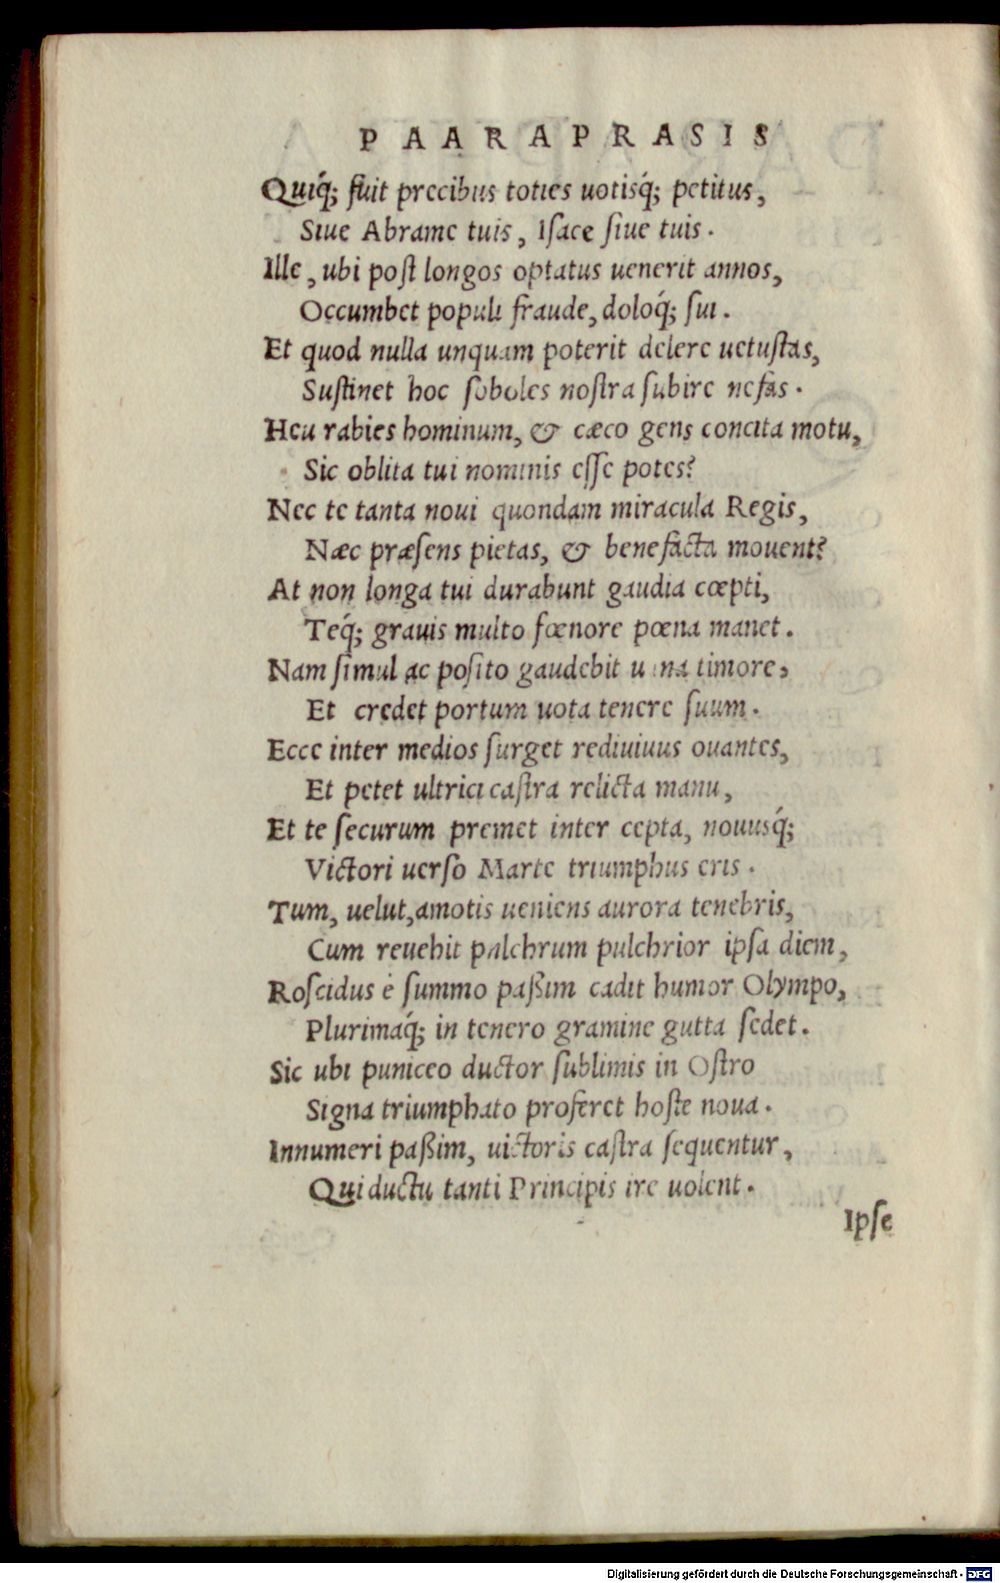 PAARAPRASIS
Quiq́; fuit precibus toties uotisq́; petitus,
Siue Abrame tuis, Isace ſiue tuis.
Ille, ubi poſt longos optatus uenerit annos,
Occumbet populi fraude, doloq́; ſui.
Et quod nulla unquam poterit delere uetuſtas,
Suſtinet hoc ſoboles noſtra ſubire nefas.
Heu rabies hominum, & cæco gens concita motu,
Sic oblita tui nominis eſſe potes?
Nec te tanta noui quondam miracula Regis,
Næc præſens pietas, & benefacta mouent?
At non longa tui durabunt gaudia cœpti,
Teq́; grauis multo fœnore pœna manet.
Nam ſimul ac poſito gaudebit timore,
Et credet portum uota tenere ſuum.
Ecce inter medios ſurget rediuiuus ouantes,
Et petet ultrici caſtra relicta manu,
Et te ſecurum premet inter cepta, nouusq́;
Victori uerſo Marte triumphus eris.
Tum, uelut, amotis ueniens aurora tenebris,
Cum reuehit pulchrum pulchrior ipſa diem,
Roſcidus è ſummo paßim cadit humor Olympo,
Plurimaq́; in tenero gramine gutta ſedet.
Sic ubi puniceo ductor ſublimis in Oſtro
Signa triumphato proferet hoſte noua.
Innumeri paßim, uictoris caſtra ſequentur,
Qui ductu tanti Principis ire uolent.
Ipſe
Digitalisierung gefördert durch die Deutsche Forschungsgemeinschaft - DFG